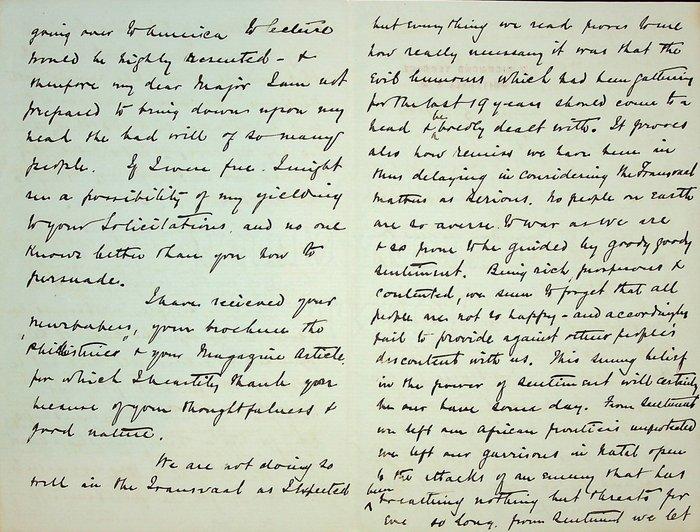 going over to America to lecture
would be highly resented - &
therefore my dear Major I am not
prepared to bring down upon my
head the bad will of so many
people. If I were free I might
see a possibility of my yielding
to your Solicitations, and no one
knows better than you how to
persuade.
I have received your
"newspapers", your brochure the
& your Magazine Article
for which I heartily thank you
because of your thoughtfulness &
good nature.
We are not doing so
well in the Transvaal as I expected
but everything we read proves to me
how really necessary it was that the
Evil humours which had been gathering
for the last 19 years should come to a
head & be boldly dealt with. It proves
also how remiss we have been in
thus delaying in considering the Transvaal
matters as serious. No people on Earth
are so averse to war as we are
& so prone to be guided by goody goody
sentiment. Being rich, prosperous &
contented, we seem to forget that all
people are not so happy - and accordingly
fail to provide against other people's
discontent with us. This sunny belief
in the power of sentiment will certainly
some day. From sentiment
we left our African frontiers unprotected
we left our garrisons in Natal open
to the attacks of an enemy that has
been breathing nothing but threats for
ever so long. From sentiment we let